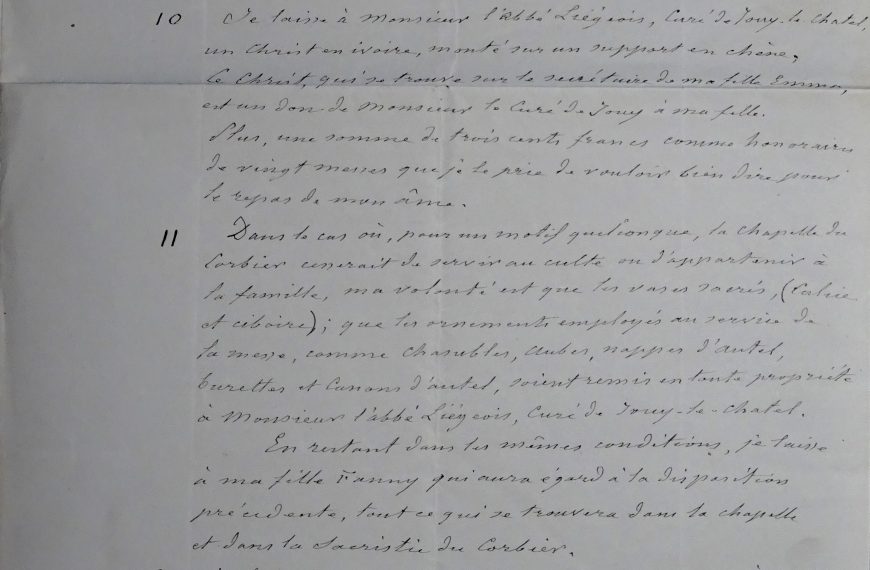 10 Je laisse à Monsieur l'Abbé Liégeois, Curé de Jouy-le-Chatel,
un Christ en ivoire, monté sur un support en chêne,
Ce Christ, qui se trouve sur le secrétaire de ma fille Emma,
est un don de Monsieur le Curé de Jouy à ma fille.
Plus, une somme de trois cents francs comme honoraires
de vingt messes que je le prie de vouloir bien dire pour
le repos de mon âme.
11 Dans le cas où, pour un motif quelconque, la chapelle du
Corbier cesserait de servir au culte ou d'appartenir à
la famille, ma volonté est que les vases sacrés, (Calice
et ciboire); que les ornements employés au service de
la messe, comme Chasubles, Aubes, nappes d'autel,
burettes et Canons d'autel, soient remis en toute propriété
à Monsieur l'abbé Liégeois, Curé de Jouy-le-Chatel.
En restant dans les mêmes conditions, je laisse
à ma fille Fanny qui aura égard à la disposition
précédente, tout ce qui se trouvera dans la chapelle
et dans la Sacristie du Corbier.